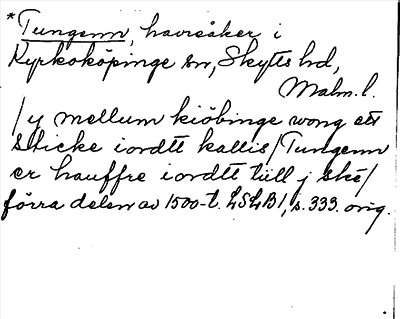 *Tungenn, havreåker i
Kyrkoköpinge sn, Skytts hd,
Malm. l.
/ y mellum kiöbinge wong ett
sticke iordtt kallis / Tungenn
er hauffre iordtt tiill j ské /
förra delen av 1500-t. LSLB1, s. 333. orig.